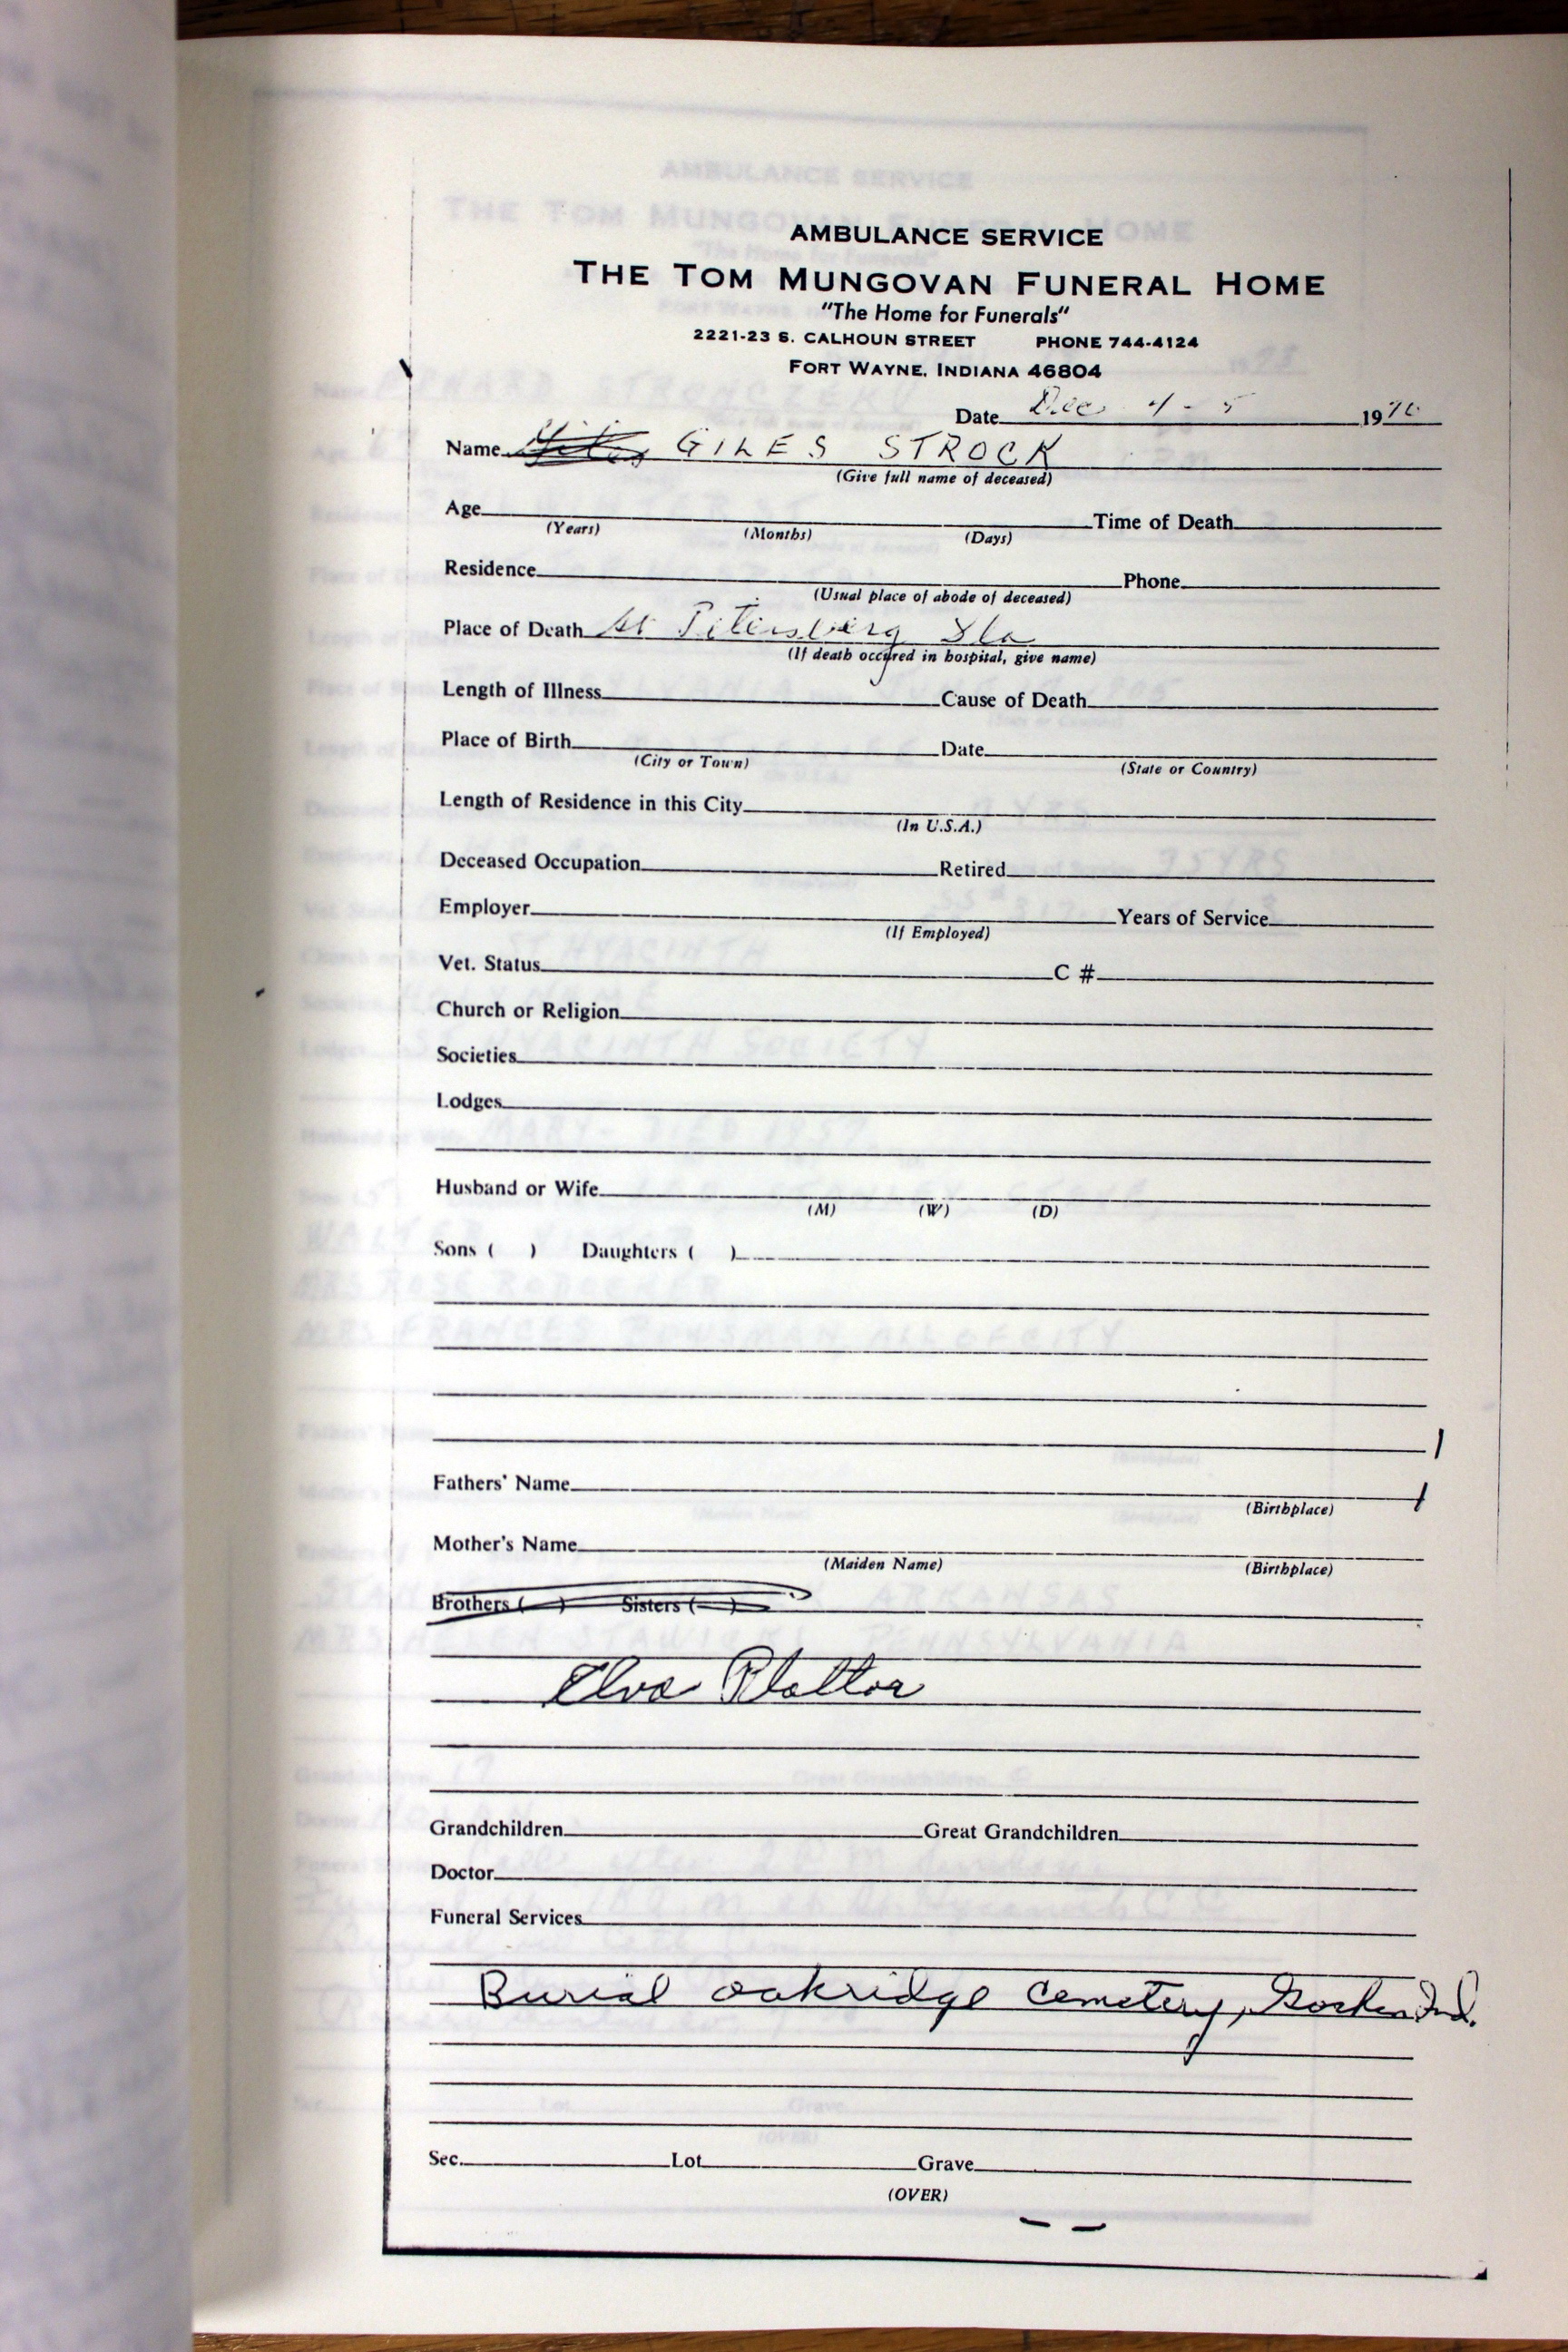 AMBULANCE SERVICE
THE TOM MUNGOVAN FUNERAL HOME
"The Home for Funerals"
2221-23 S. CALHOUN STREET PHONE 744-4124
FORT WAYNE, INDIANA 46804
Date Dec 4-5 1970
Name GILES STROCK
(Give full name of deceased)
Age Time of Death
(Years) (Months) (Days)
Residence Phone
(Usual place of abode of deceased)
Place of Death St Petersberg Fla
(If death occured in hospital, give name)
Length of Illness Cause of Death
Place of Birth Date
(City or Town) (State or Country)
Length of Residence in this City
(In U.S.A.)
Deceased Occupation Retired
Employer Years of Service
(If Employed)
Vet. Status C #
Church or Religion
Societies
Lodges
Husband or Wife
(M) (W) (D)
Sons ( ) Daughters ( )
Fathers' Name
(Birthplace)
Mother's Name
(Maiden Name) (Birthplace)
Brothers ( ) Sisters ( )
Elva
Grandchildren Great Grandchildren
Doctor
Funeral Services
Burial oakridge cemetery, Goshen Ind.
Sec. Lot Grave
(OVER)